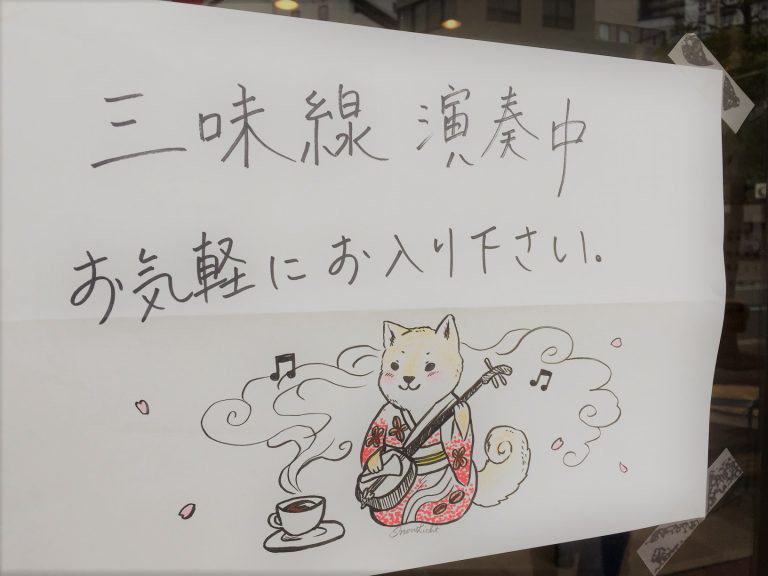 三味線 演奏中
お気軽にお入り下さい。